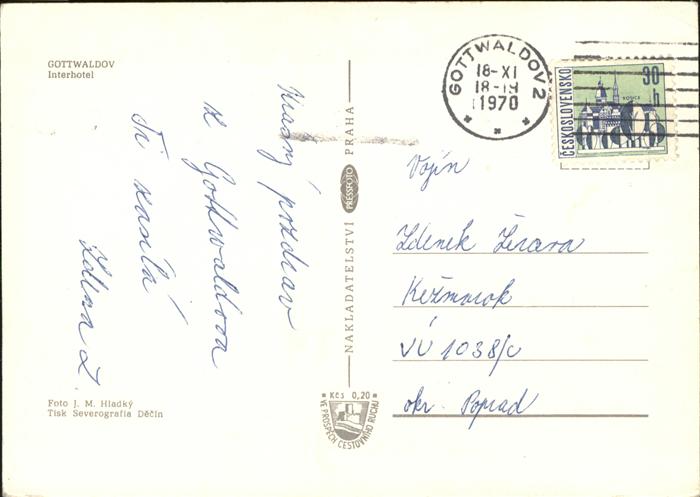 GOTTWALDOV
Interhotel
Krásný pozdrav
z Gottwaldova
Ti zasílá
Zdena Z.
Foto J. M. Hladký
Tisk Severografia Děčín
NAKLADATELSTVÍ PRESSFOTO PRAHA
Kčs 0,20
VE PROSPĚCH CESTOVNÍHO RUCHU
GOTTWALDOV 2
18-XI
18-19
1970
ČESKOSLOVENSKO
30 h
Vojín
Zdeněk
Kežmarok
VÚ 1038/c
okr. Poprad